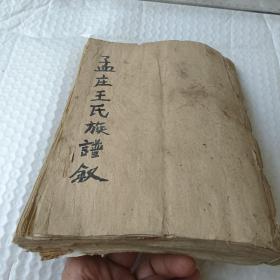 孟庄王氏族譜叙